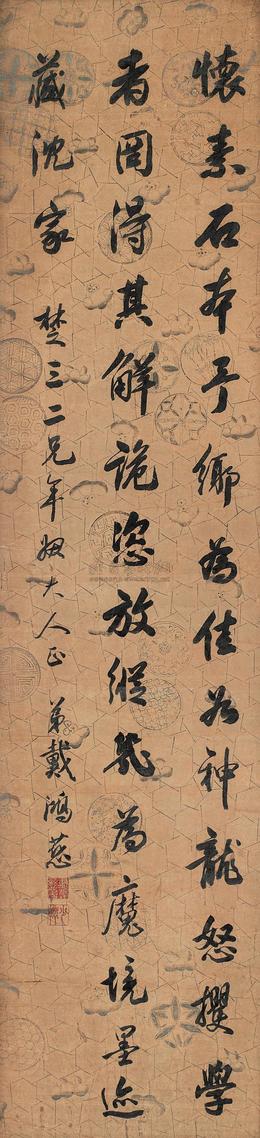 懷素石本于鄉為佳若神龍怒攫學
者罔得其解詭恣放縱幾為魔境墨迹
藏沈家
楚三二兄年姻大人正
弟戴鴻慈